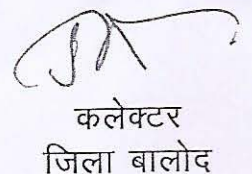 कलेक्टर
जिला बालोद